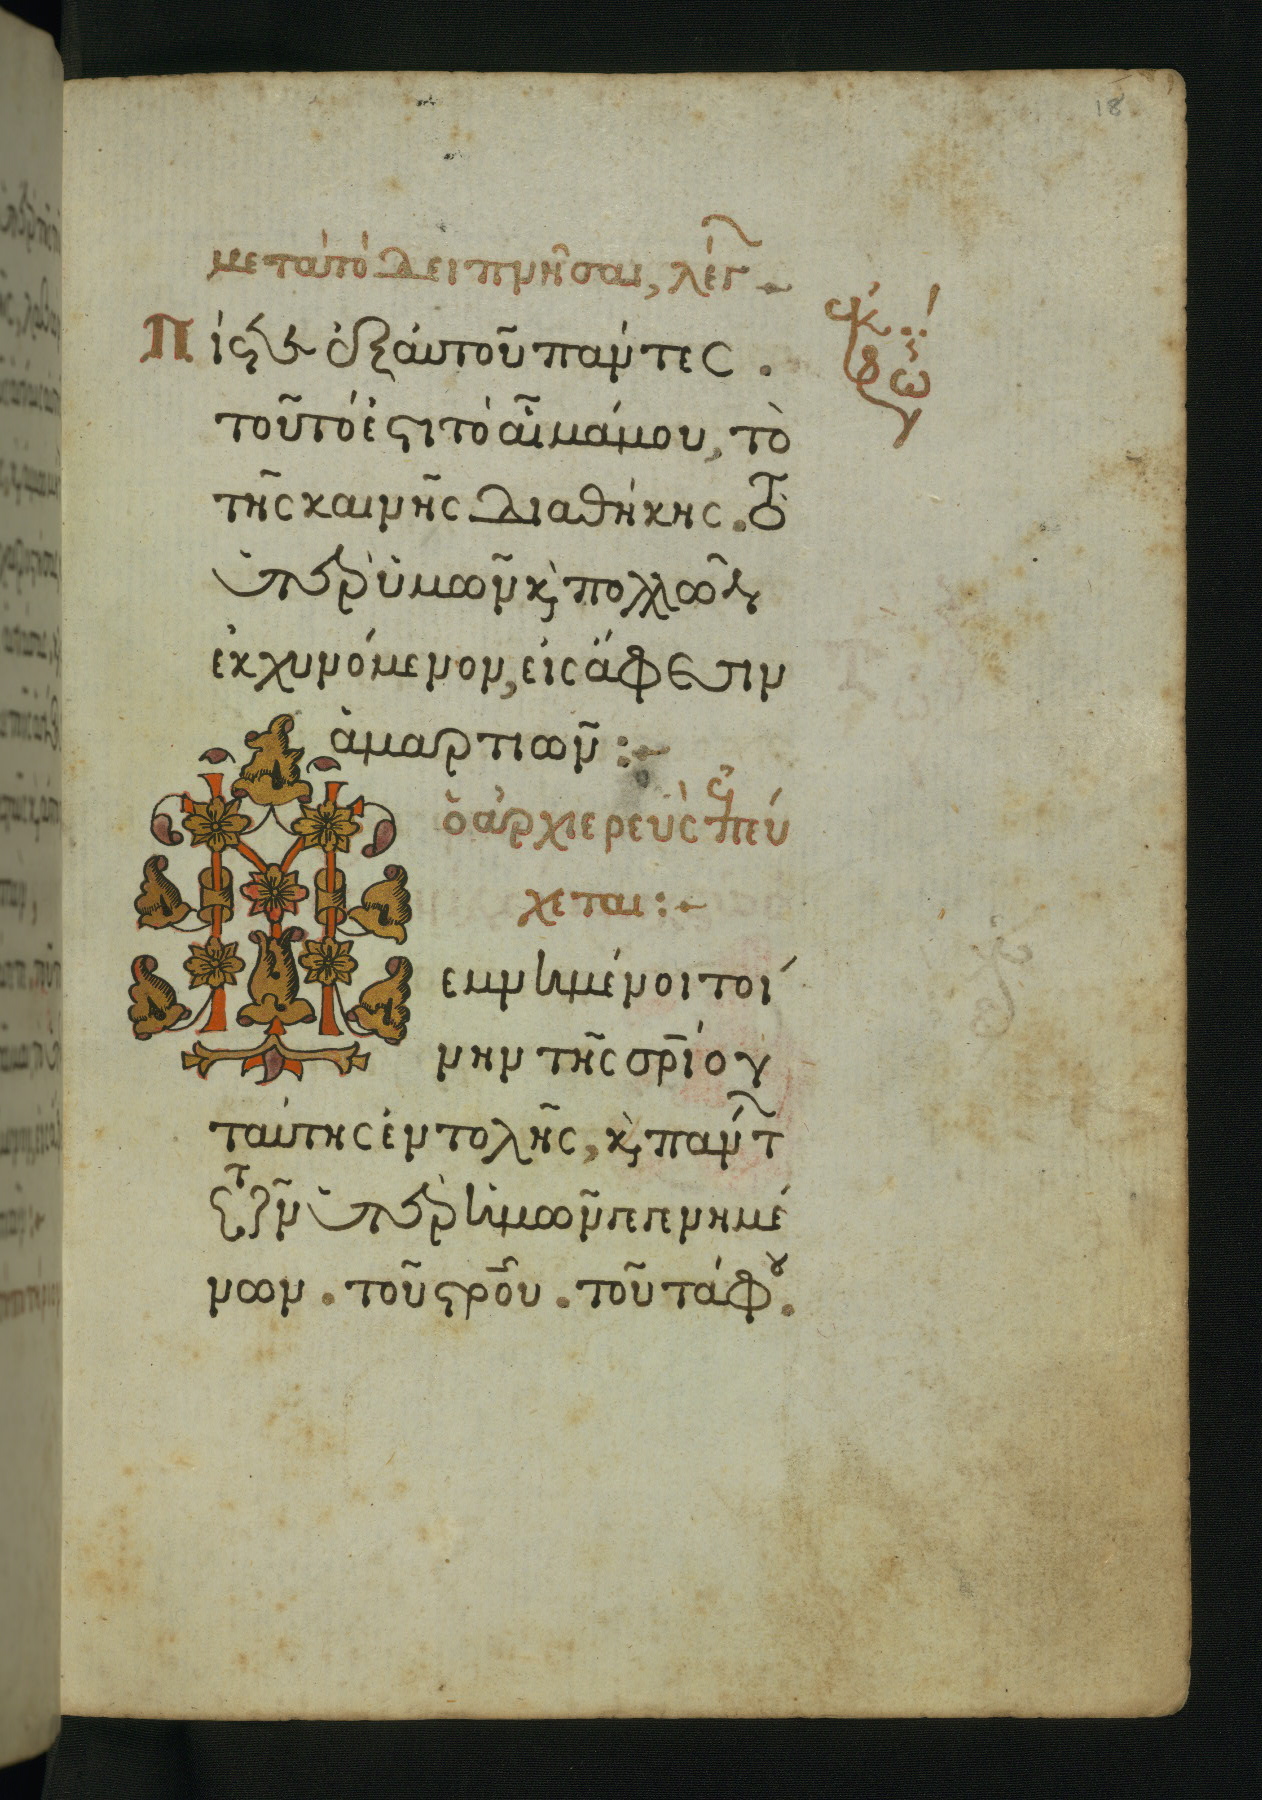 18
μετὰ τὸ δειπνῆσαι, λέγ
Πίετε ἐξ αὐτοῦ πάντες.
τοῦτό ἐστι τὸ αἷμά μου, τὸ
τῆς καινῆς διαθήκης. τὸ
ὑπὲρ ὑμῶν κ̀ πολλῶν
ἐκχυνόμενον, εἰς ἄφεσιν
ἁμαρτιῶν:
ὁ ἀρχιερεὺς ἐπεύ
χεται:
Μεμνημένοι τοί
νυν τῆς σρίου
ταύτης ἐντολῆς, κ̀ πάντ
τῶν ὑπὲρ ἡμῶν γεγενημέ
νων. τοῦ στροῦ. τοῦ τάφου.